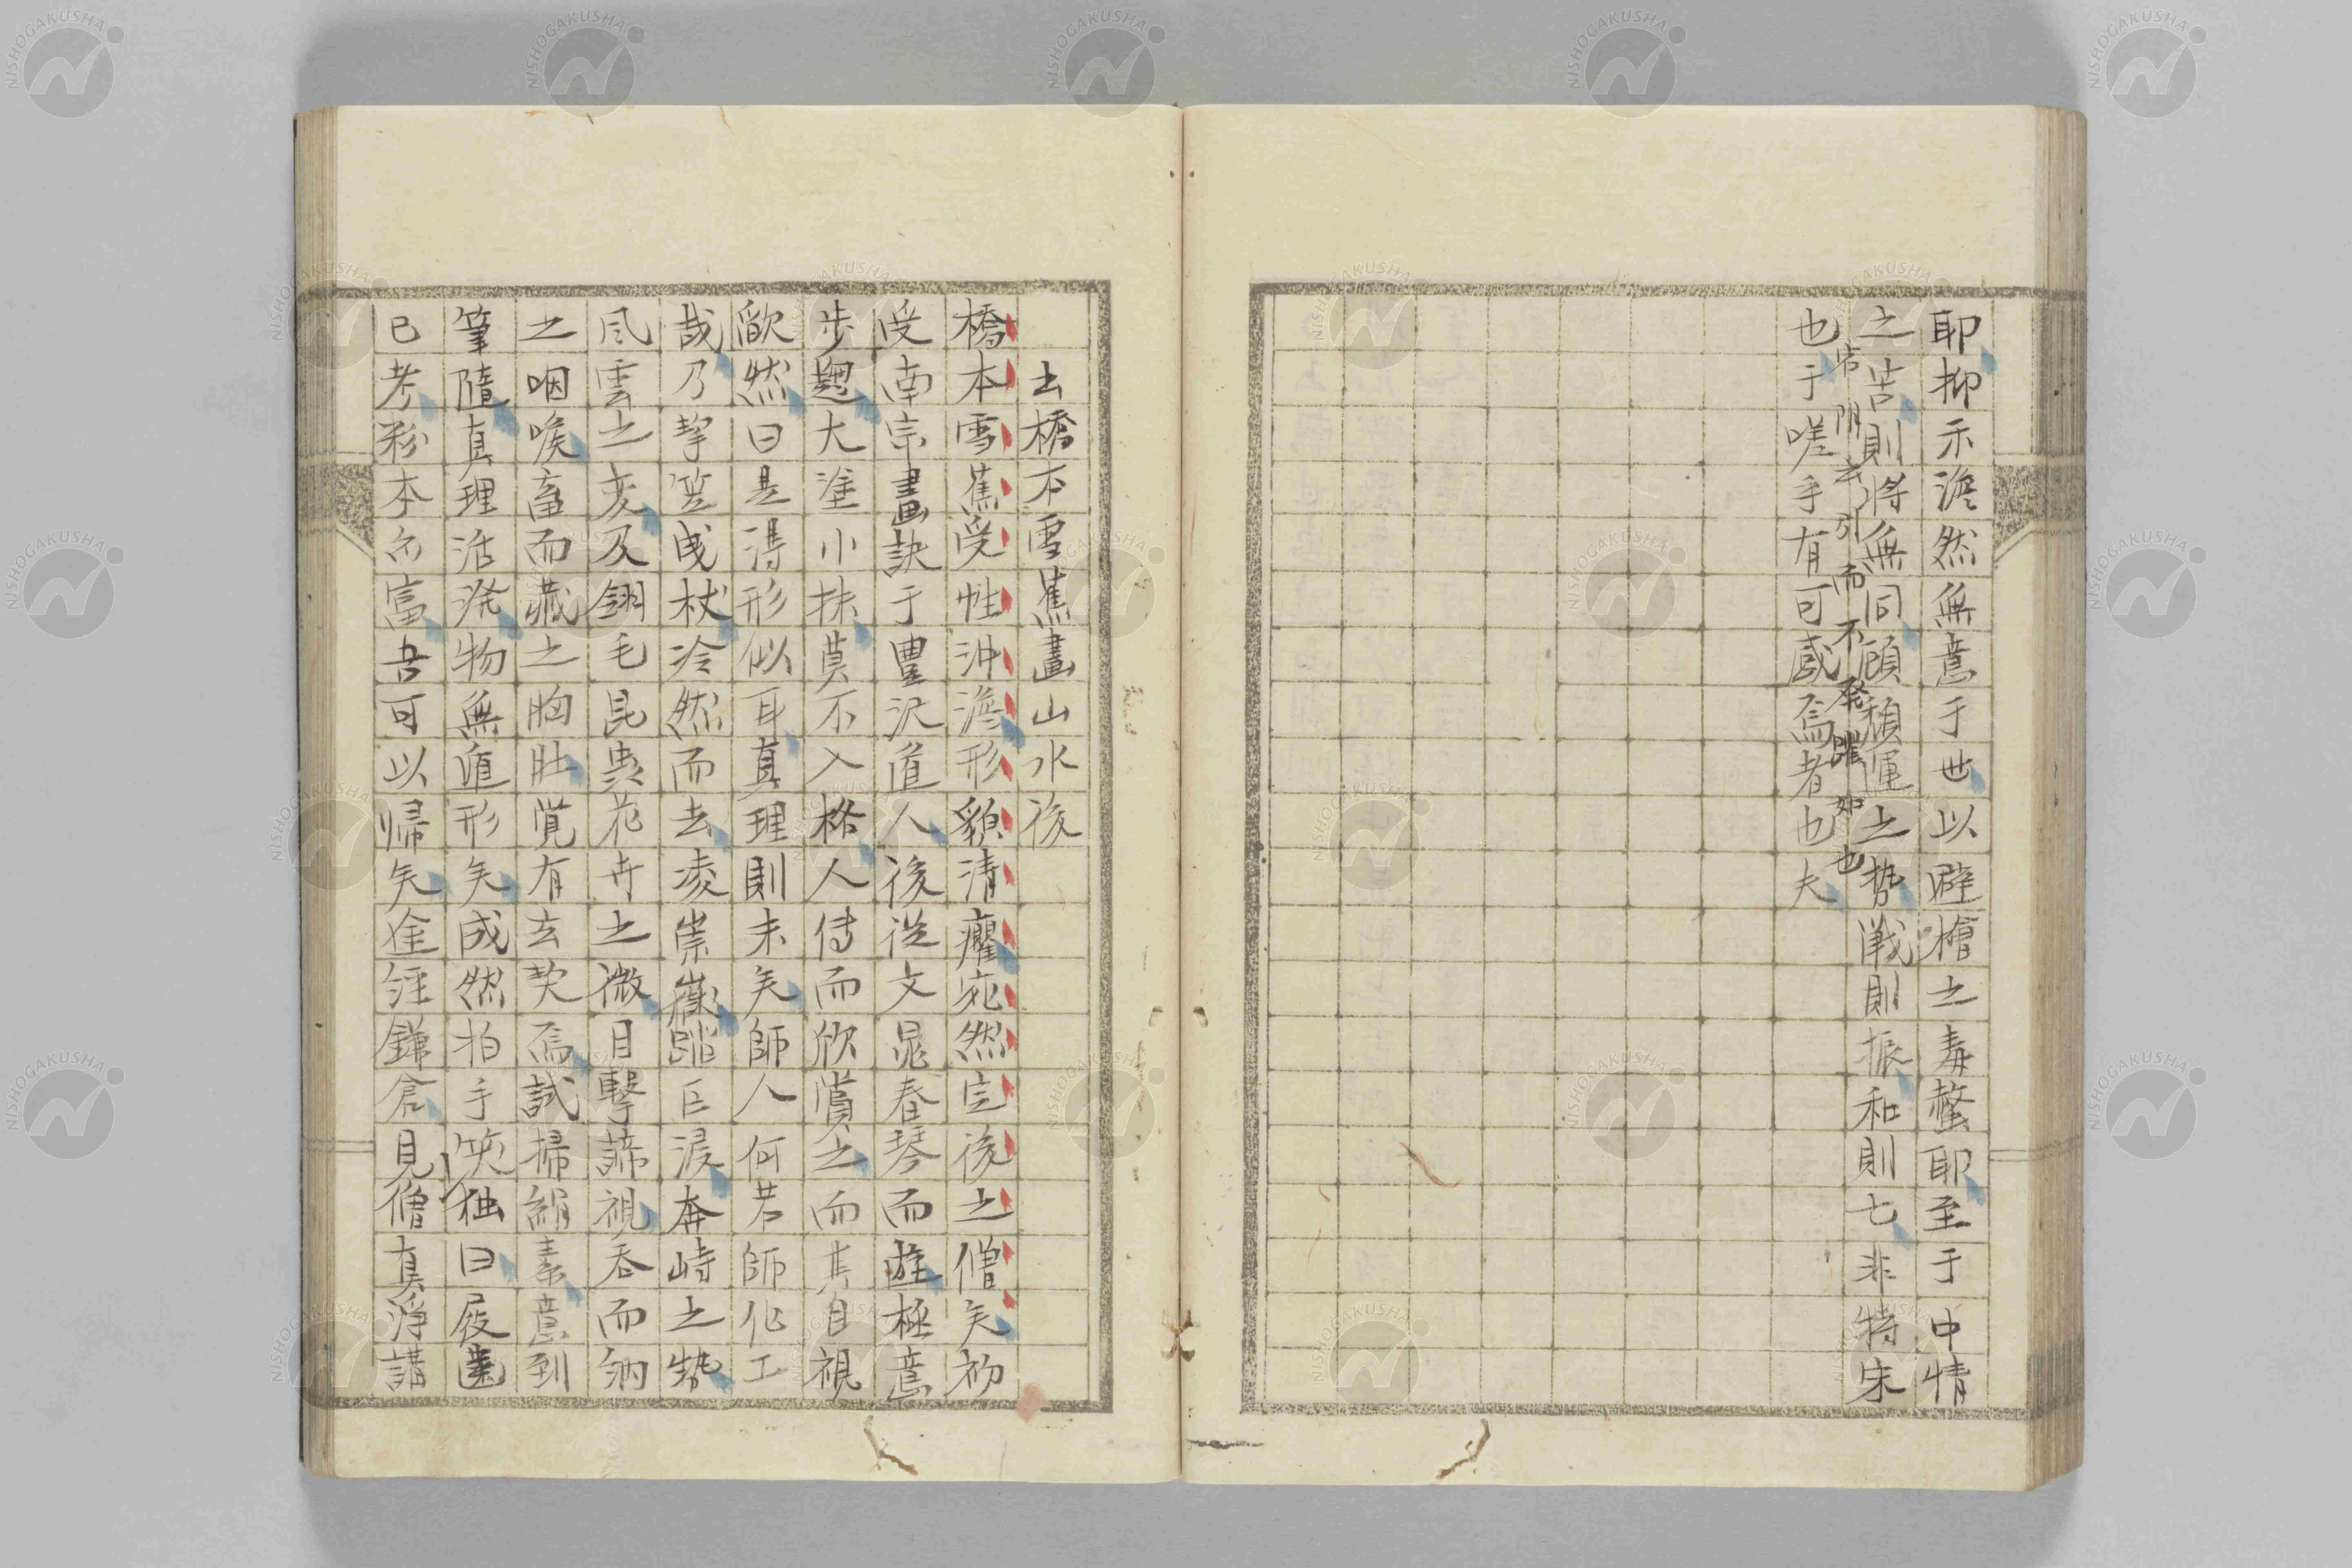 耶抑示澹然無意于世以避檜之毒螫耶至于中情
之苦則將無同顧頽運之勢戰則振和則七非特宋
常門云引而不發躍如也
也于嗟乎有可感焉者也夫
書橋本雪蕉畫山水後
橋本雪蕉受性沖澹形貌清癯宛然定後之僧矣初
受南宗畫訣于豊沢道人後從文晁春琴而遊極意
步趨大塗小抹莫不入格人傳而欣賞之而其自視
歉然曰是得形似耳真理則未矣師人何若師化工
哉乃挈笠曳杖冷然而去凌崇巌踏巨浸奔峙之勢
風雲之変及翎毛昆虫花卉之微目擊諦視呑而納
之咽喉畜而藏之胸肚覚有玄契焉試掃絹素意到
筆隨真理活溌物無遁形矣成然拍手笑独曰屐歯
已考粉本亦富吾可以帰矣途経鎌倉見僧真浄講
NISHOGAKUSHA